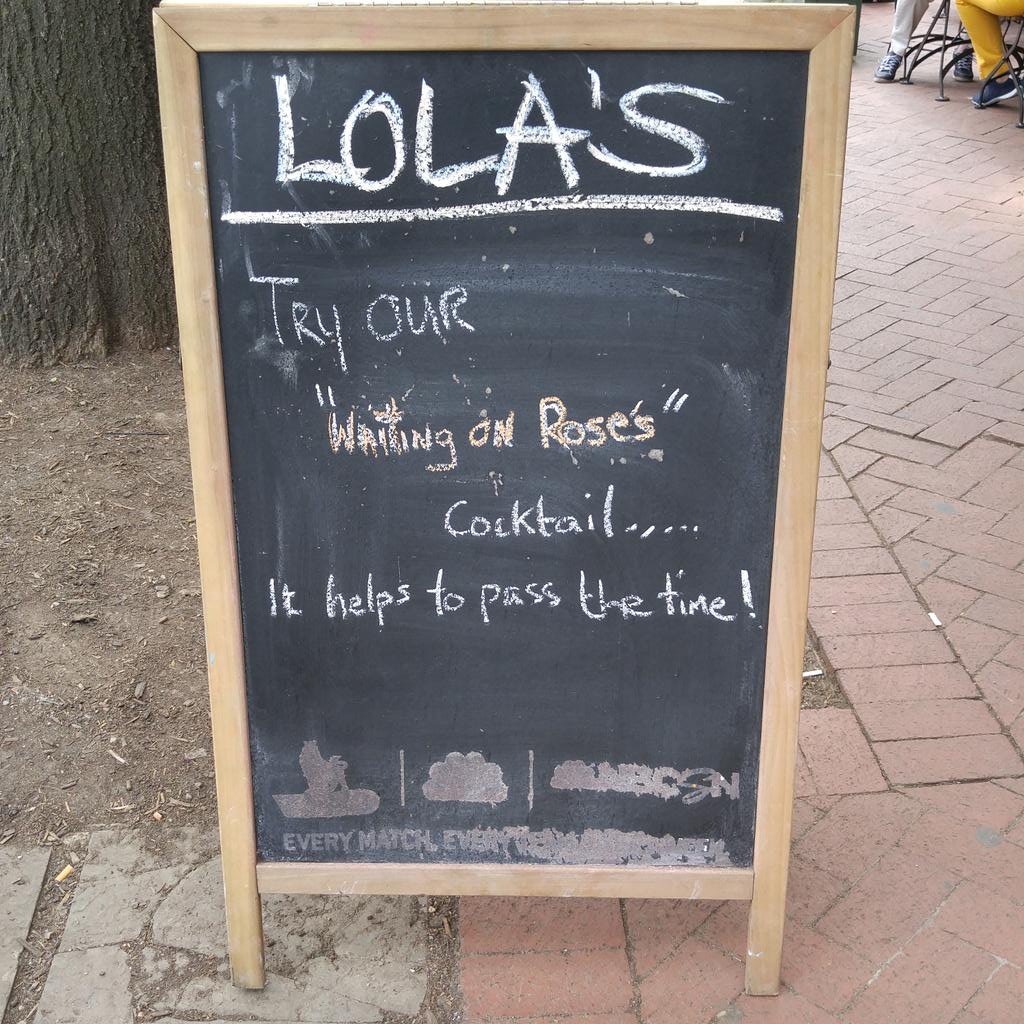 LOLA'S
Try our
"Waiting on Rose's"
Cocktail.....
It helps to pass the time!
NBCSN
EVERY MATCH. EVERY